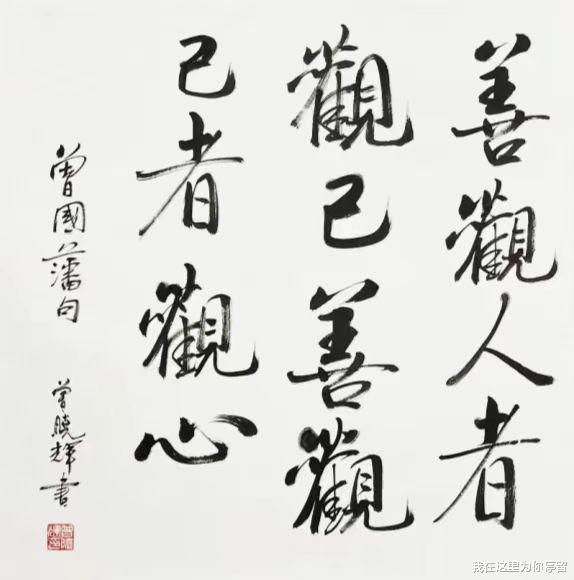 善觀人者
觀己善觀
己者觀心
曾國藩句
曾曉輝書
我在这里为你停留